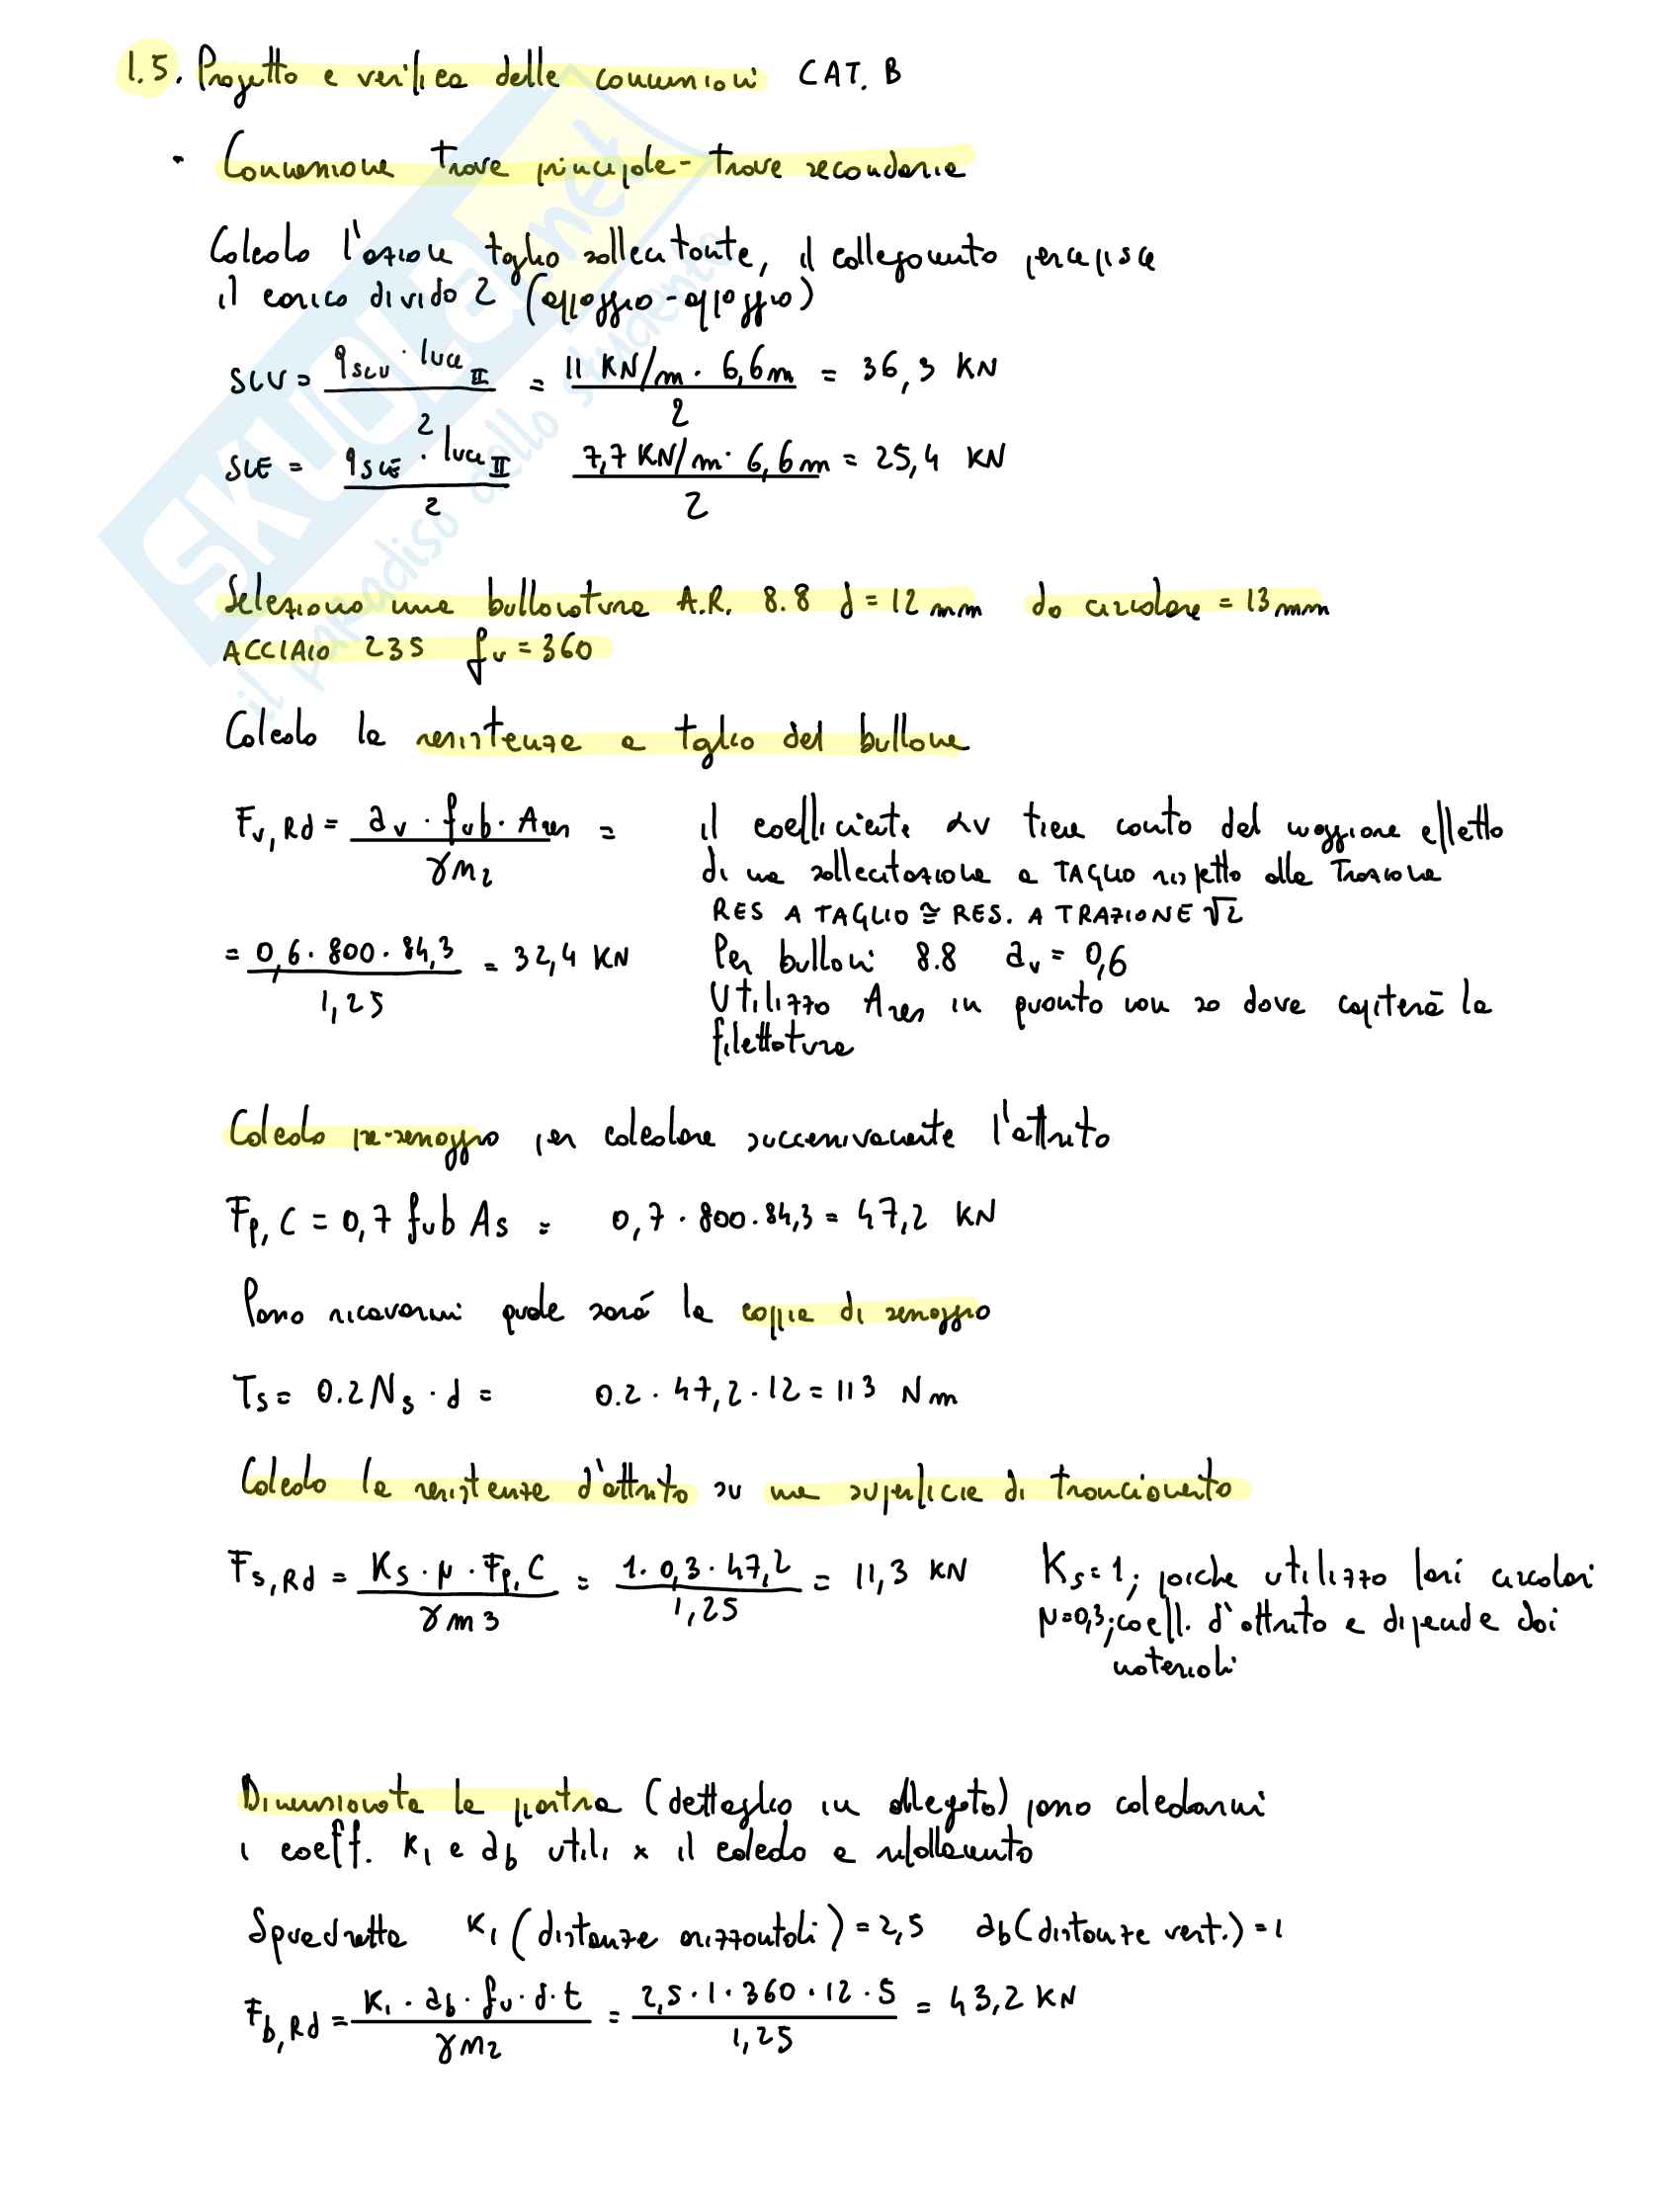 1.5. Progetto e verifica delle connessioni CAT. B
• Connessione trave principale - trave secondaria
Calcolo l'azione taglio sollecitante, il collegamento percepisce
il carico diviso 2 (appoggio-appoggio)
SLU = qSLU · luce II / 2 = 11 KN/m · 6,6m / 2 = 36,3 KN
SLE = qSLE · luce II / 2 7,7 KN/m · 6,6m / 2 = 25,4 KN
Seleziono una bullonatura A.R. 8.8 d = 12 mm do circolare = 13 mm
ACCIAIO 235 fu = 360
Calcolo la resistenza a taglio del bullone
Fv,Rd = av · fub · Ares / γm2 =
il coefficiente αv tiene conto del maggiore effetto
di una sollecitazione a TAGLIO rispetto alla Trazione
RES A TAGLIO ≅ RES. A TRAZIONE √2
= 0,6 · 800 · 84,3 / 1,25 = 32,4 KN
Per bulloni 8.8 av = 0,6
Utilizzo Ares in quanto non so dove capiterà la
filettatura
Calcolo pre-serraggio per calcolare successivamente l'attrito
Fp,C = 0,7 fub As = 0,7 · 800 · 84,3 = 47,2 KN
Posso ricavarmi quale sarà la coppia di serraggio
Ts = 0.2 Ns · d = 0.2 · 47,2 · 12 = 113 Nm
Calcolo la resistenza d'attrito su una superficie di tranciamento
Fs,Rd = Ks · μ · Fp,C / γm3 = 1 · 0,3 · 47,2 / 1,25 = 11,3 KN
Ks = 1; poiche utilizzo fori circolari
μ=0,3; coeff. d'attrito e dipende dai
materiali
Dimensionata la piastra (dettaglio in allegato) posso calcolarmi
i coeff. K1 e ab utili x il calcolo a rifollamento
Squadretta K1 (distanze orizzontali) = 2,5 ab (distanze vert.) = 1
Fb,Rd = K1 · ab · fu · d · t / γm2 = 2,5 · 1 · 360 · 12 · 5 / 1,25 = 43,2 KN
SKUOLA.net
il paradiso dello studente